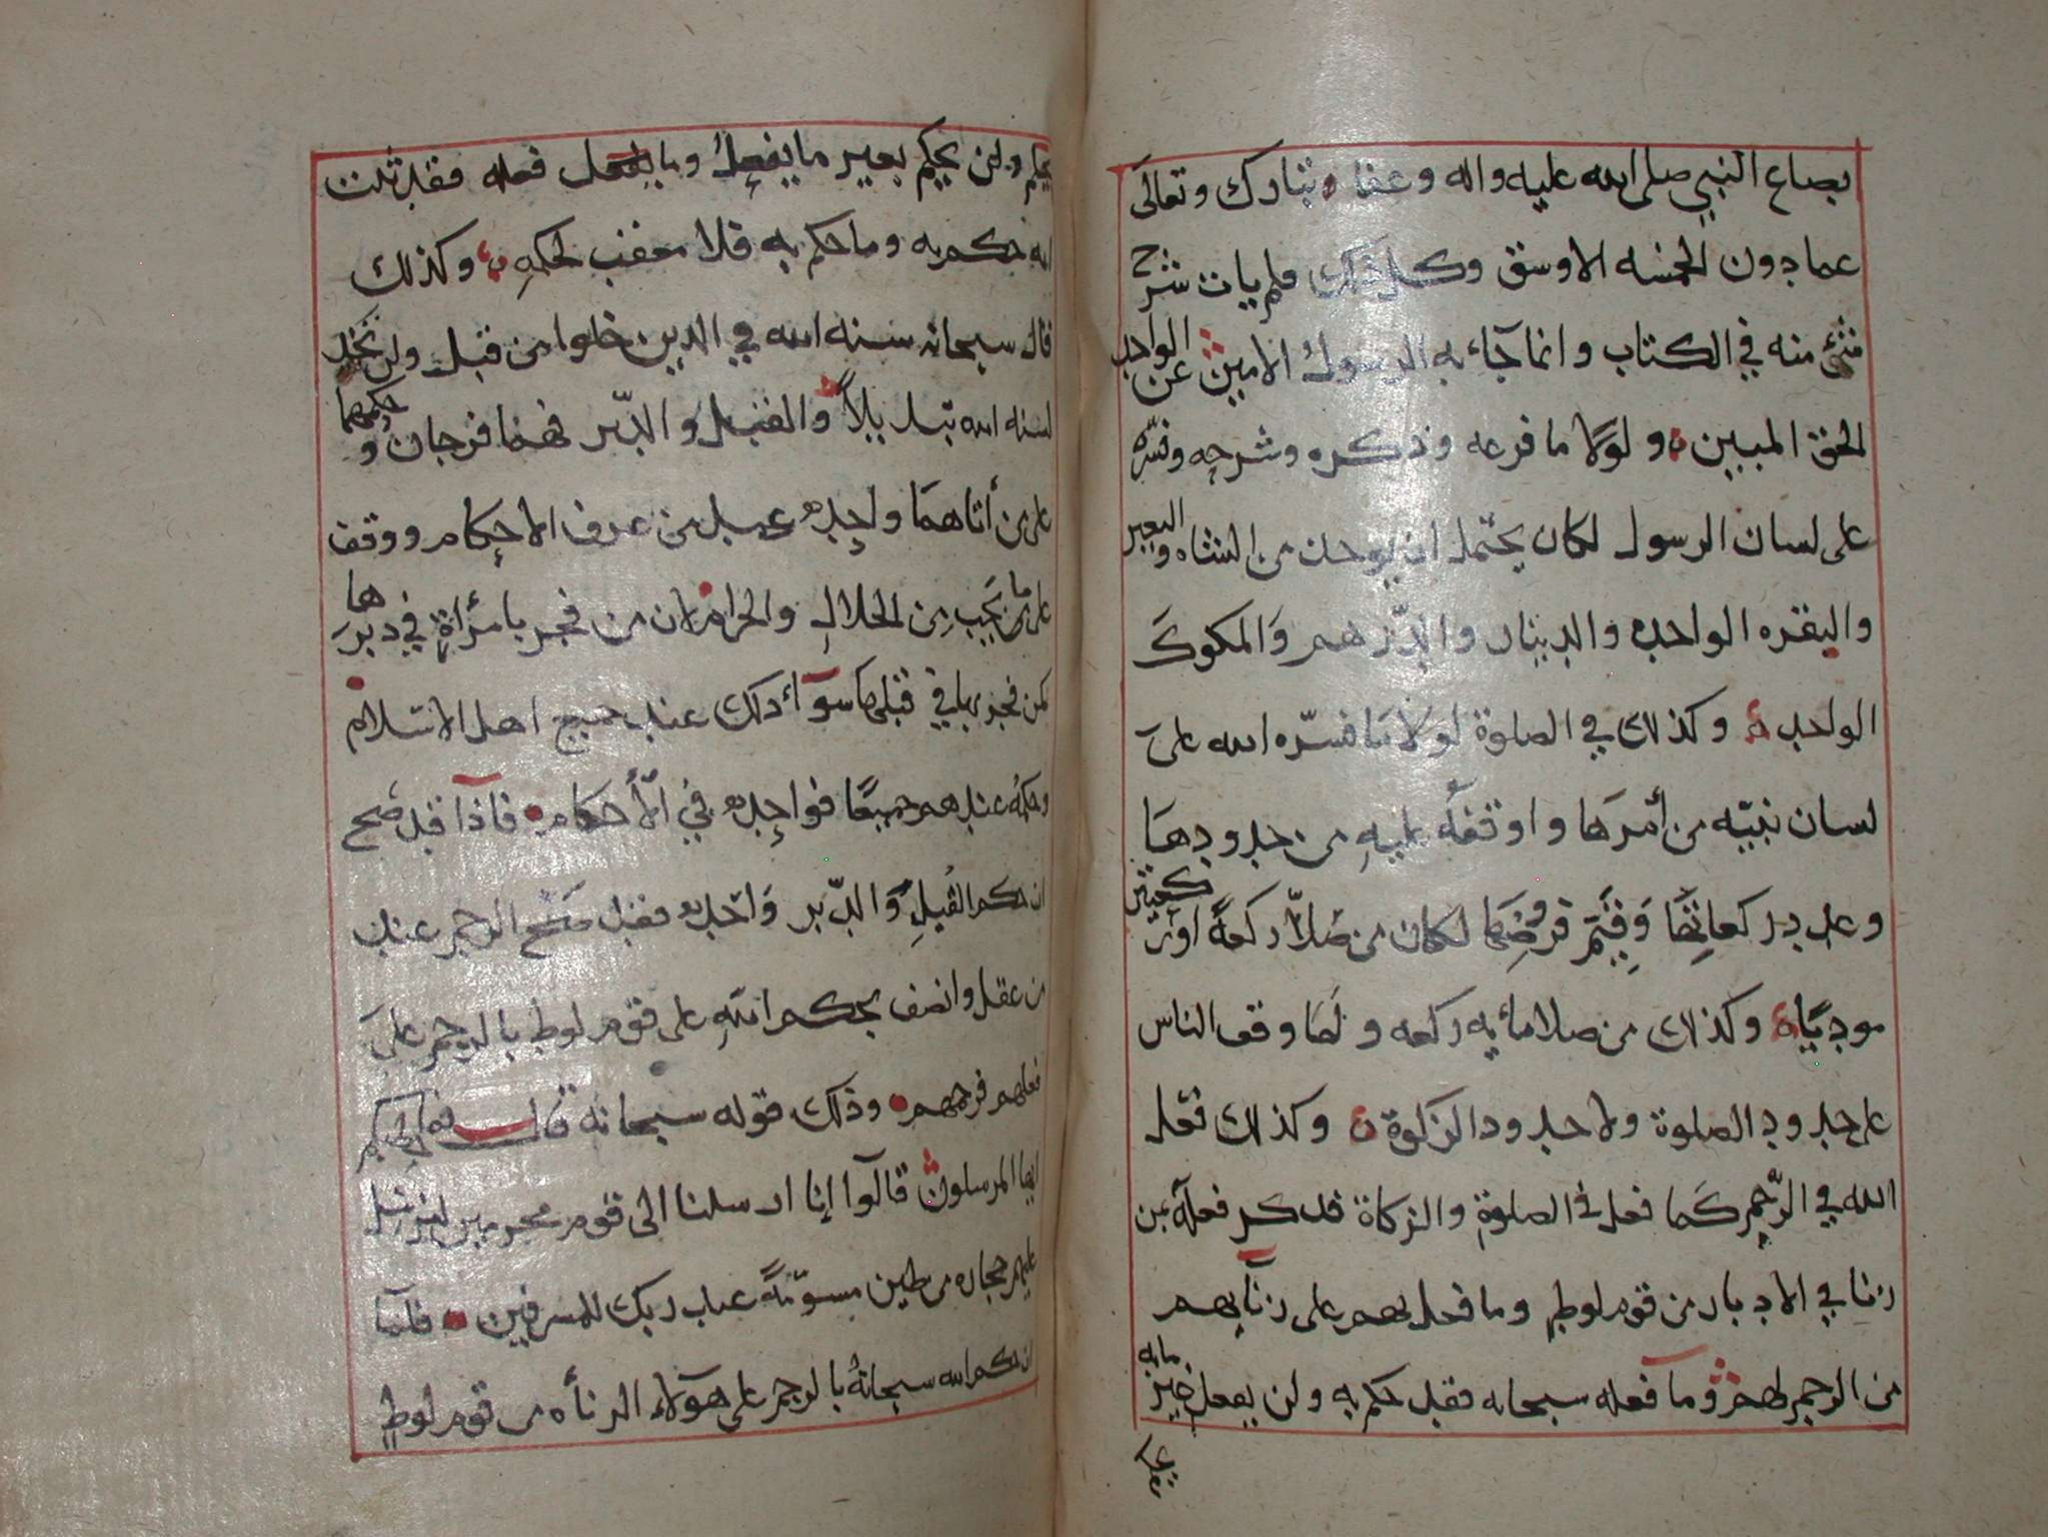 بصاع النبي صلى الله عليه واله وعفا تبارك وتعالى
عما دون الخمسه الاوسق وكل ذلك فلم يات شرح
شئ منه في الكتاب وانما جآء به الرسول الامين عن الواحد
الحق المبين ولولا ما فرعه وذكره وشرحه وفسره
على لسان الرسول لكان يحتمل ان يوخذ من الشاه والبعير
والبقره الواحده والدينار والدّرهم والمكوك
الواحد وكذلك في الصلوة لولا ما فسّره الله على
لسان نبيّه من أمرها واوقفه عليه من حدودها
وعدد ركعاتها وفهم فروضها لكان من صلّا ركعةً او كعشر
موديًا وكذلك من صلا مأيه ركعه ولما وقف الناس
على حدود الصلوة ولا حدود الزكوة وكذلك فعل
الله في الرّجم كما فعل في الصلوة والزكاة فذكر فعله بمن
زنا في الادبار من قوم لوط وما فعل بهم على زنآيهم
من الرجم لهم وما فعله سبحانه فقد حكم به ولن يفعل غير مابه
يحكم
يحكم ولن يحكم بغير ما يفعل وما فعله فقد ثبت
انه حكم به وما حكم به فلا معقب لحكمه وكذلك
قال سبحانه سنه الله في الذين خلوا من قبل ولن تجد
لسنه الله تبديلاً والقبل والدّبر فهما فرجان وحكمهما
على من أتاهما واحده عند من عرف الاحكام ووقف
على ما يجب من الحلال والحرام لان من فجر بامرأة في دبرها
كمن فجر بها في قبلها سوآء ذلك عند جميع اهل الاسلام
وحكمه عندهم جميعًا فواحده في الأحكام فاذا قد صح
ان حكم القبل والدّبر واحده فقد صح الرجم عند
من عقل وانصف بحكم الله على قوم لوط بالرجم على
فعلهم فرجمهم وذلك قوله سبحانه قال فما خطبكم
ايها المرسلون قالوا إنا ارسلنا الى قوم مجرمين لنرسل
عليهم حجاره من طين مسوّمةً عند ربك للمسرفين فلما
ان حكم الله سبحانه بالرجم على هؤلاء الزناه من قوم لوط